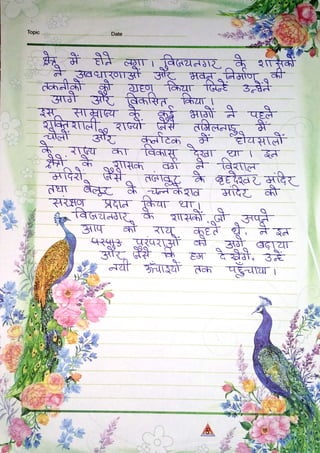 Topic Date
में होने लगा। विजयनगर के शासकों
ने अवधारणाओं और भवन निर्माण की
तकनीकों को ग्रहण किया जिन्हें उन्होंने
आगे और विकसित किया।
इस साम्राज्य के कई भागों ने पहले
शक्तिशाली राज्यों जैसे तमिलनाडु में
चोलों और कर्नाटक में होयसालों
के राज्य का विकास देखा था। इन
क्षेत्रों के शासक वर्ग ने विशाल
मंदिरों जैसे तंजावुर के बृहदेश्वर मंदिर
तथा बेलूर के चन्नकेशव मंदिर को
संरक्षण प्रदान किया था।
विजयनगर के शासकों जो अपने
आप को राय कहते थे, ने इन
परंपराओं को आगे बढ़ाया
और जैसे कि हम देखेंगे, उन्हें
नयी ऊँचाइयों तक पहुँचाया।